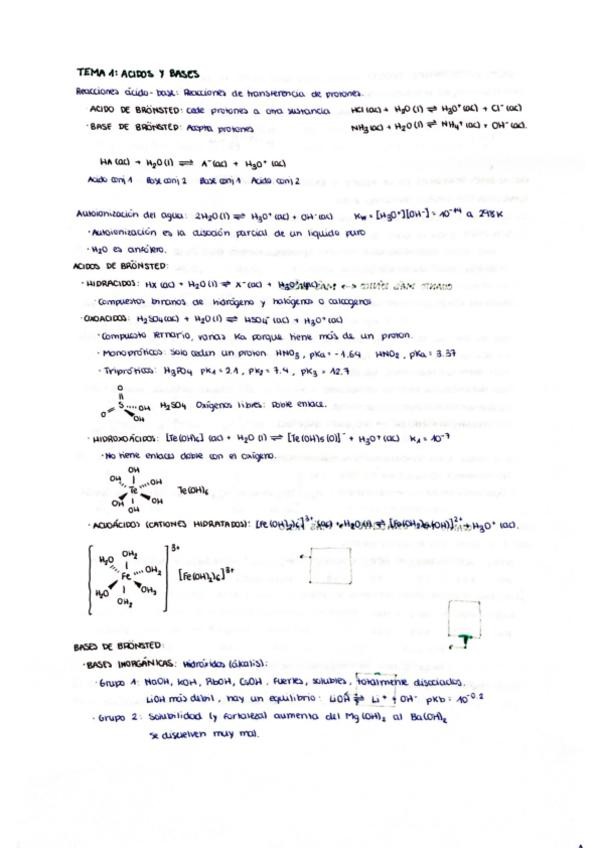 TEMA 1: ACIDOS Y BASES
Reacciones ácido-base: Reacciones de transferencia de protones.
ACIDO DE BRÖNSTED: cede protones a otra sustancia HCl (ac) + H₂O (l) ⇌ H₃O⁺ (ac) + Cl⁻ (ac)
· BASE DE BRÖNSTED: Acepta protones NH₃ (ac) + H₂O (l) ⇌ NH₄⁺ (ac) + OH⁻ (ac).
HA (ac) + H₂O (l) ⇌ A⁻ (ac) + H₃O⁺ (ac)
Acido conj 1 Base conj 2 Base conj 1 Acido conj 2
Autoionización del agua: 2H₂O (l) ⇌ H₃O⁺ (ac) + OH⁻ (ac) Kw = [H₃O⁺][OH⁻] = 10⁻¹⁴ a 298K
· Autoionización es la disociación parcial de un líquido puro
· H₂O es anfótero.
ACIDOS DE BRÖNSTED:
· HIDRÁCIDOS: HX (ac) + H₂O (l) ⇌ X⁻ (ac) + H₃O⁺ (ac)
· Compuestos binarios de hidrógeno y halógenos o calcógenos
· OXOACIDOS: H₂SO₄ (ac) + H₂O (l) ⇌ HSO₄⁻ (ac) + H₃O⁺ (ac)
· Compuesto ternario, varias Ka porque tiene más de un proton.
· Monopróticos: Solo ceden un proton HNO₃, pKa = -1.64 HNO₂, pKa = 3.37
· Tripróticos: H₃PO₄ pK₁ = 2.1, pK₂ = 7.4, pK₃ = 12.7
O
O S OH H₂SO₄ Oxígenos libres: Doble enlace.
OH
· HIDROXOÁCIDOS: [Te(OH)₆] (ac) + H₂O (l) ⇌ [Te(OH)₅(O)]⁻ + H₃O⁺ (ac) K₁ = 10⁻⁷
· No tiene enlace doble con el oxígeno.
OH
OH OH
Te Te(OH)₆
OH OH
OH
· ACUOÁCIDOS (CATIONES HIDRATADOS): [Fe(OH₂)₆]³⁺ (ac) + H₂O (l) ⇌ [Fe(OH₂)₅(OH)]²⁺ + H₃O⁺ (ac).
3+
OH₂
H₂O OH₂
Fe [Fe(OH₂)₆]³⁺
H₂O OH₂
OH₂
BASES DE BRÖNSTED:
· BASES INORGÁNICAS: Hidróxidos (álcalis):
· Grupo 1: NaOH, KOH, RbOH, CsOH, Fuertes, solubles, totalmente disociados.
LiOH más débil, hay un equilibrio: LiOH ⇌ Li⁺ + OH⁻ pKb = 10⁻⁰·²
· Grupo 2: Solubilidad (y fortaleza) aumenta del Mg(OH)₂ al Ba(OH)₂
se disuelven muy mal.